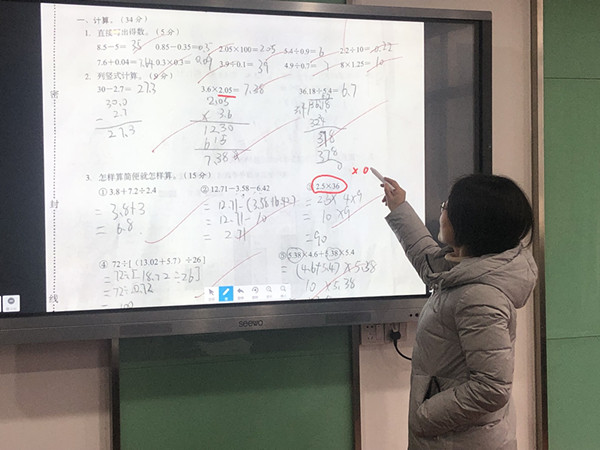 一、计算。（34分）
1. 直接写出得数。（5分）
8.5－5= 3.5 0.85－0.35= 2.05×100=205 5.4÷0.9=6 2.2÷10=0.22
7.6＋0.04= 0.3×0.3= 0.09 3.9÷0.1=39 4.9÷0.7= 8×1.25=10
2. 列竖式计算。
30－2.7=27.3 3.6×2.05=7.38 36.18÷5.4=6.7
30.0 2.05
－ 2.7 × 3.6
27.3 1230
615
7.38
378
378
0
× 0
3. 怎样算简便就怎样算。（15分）
① 3.8＋7.2÷2.4 ② 12.71－3.58－6.42 2.5×36
= 3.8+3 = 12.71-(3.58+6.42) = 2.5×4×9
= 6.8 = 12.71-10 = 10×9
= 2.71 = 90
④ 72÷[（13.02＋5.7）÷26] ⑤ 5.38×4.6＋5.38×5.4
= 72÷[18.72÷26] = (4.6+5.4)×5.38
= 72÷0.72 = 10×5.38
= 100
密
封
线
seewo